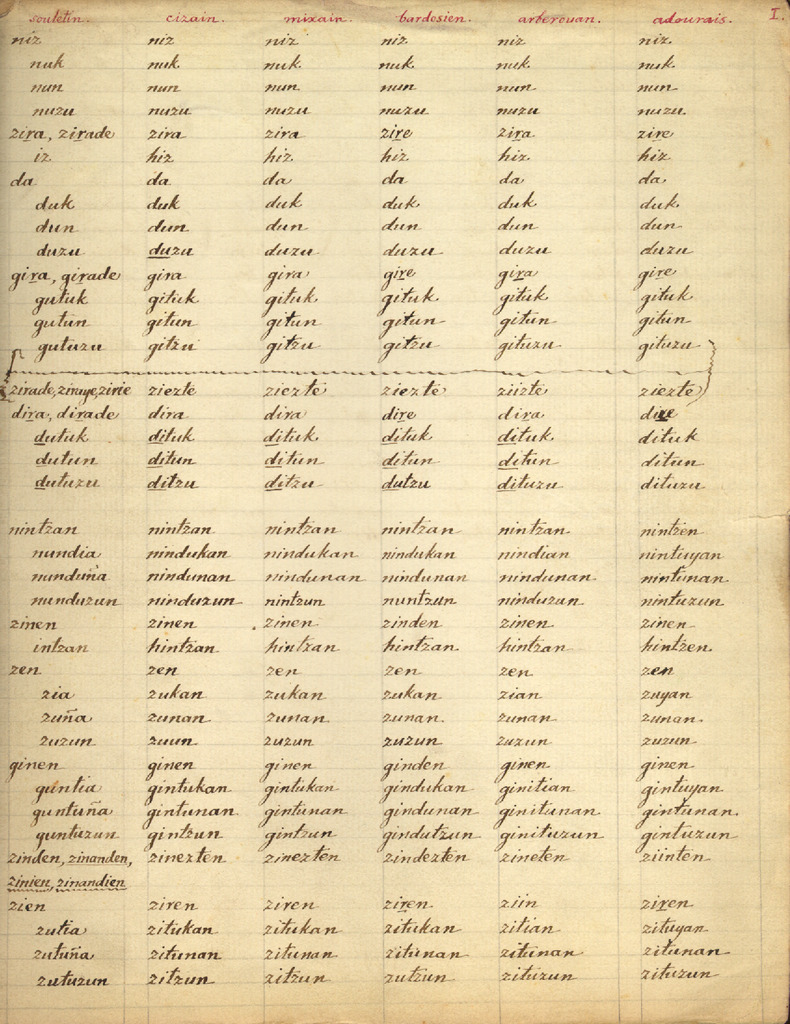 souletin. cizain. mixain. bardosien. arberouan. adourais. I.
niz niz niz niz niz niz.
nuk nuk. nuk nuk nuk. nuk.
nun nun nun. nun nun nun-
nuzu nuzu nuzu nuzu nuzu nuzu.
zira, zirade zira zira zire zira zire
iz hiz hiz. hiz hiz hiz
da da da da da da.
duk duk duk duk duk duk.
dun dun dun dun dun dun-
duzu duzu duzu duzu duzu duzu
gira, girade gira gira gire gira gire
gutuk gituk gituk. gituk gituk gituk
gutun gitun gitun gitun gitun gitun-
gutuzu gitzu gitzu gitzu gituzu gituzu
zirade, ziraye, zirie ziezte ziezte ziezte ziizte ziezte
dira, dirade dira dira dire dira dire
dutuk dituk dituk. dituk dituk. dituk
dutun ditun ditun ditun ditun ditun
dutuzu ditzu ditzu dutzu dituzu dituzu
nintzan nintzan nintzan nintzan nintzan nintzen
nundia nindukan nindukan nindukan nindian nintuyan
nunduña nindunan nindunan nindunan nindunan nintunan
nunduzun ninduzun nintzun nuntzun ninduzun nintuzun
zinen zinen zinen zinden zinen zinen-
intzan hintzan hintzan hintzan hintzan hintzen.
zen zen zen zen zen zen
zia zukan zukan zukan zian zuyan
zuña zunan zunan zunan. zunan zunan.
zuzun zuun zuzun zuzun zuzun zuzun
ginen ginen ginen ginden ginen ginen
guntia gintukan gintukan gindukan ginitian gintuyan
guntuña gintunan gintunan gindunan ginitunan gintunan.
guntuzun gintzun gintzun gindutzun ginituzun gintuzun
zinden, zinanden, zinezten zinezten zindezten zineten ziinten
zinien, zinandien
zien ziren ziren ziren ziin ziren
zutia zitukan zitukan zitukan zitian zituyan
zutuña zitunan zitunan zitunan zitunan zitunan
zutuzun zitzun zitzun zutzun zituzun zituzun